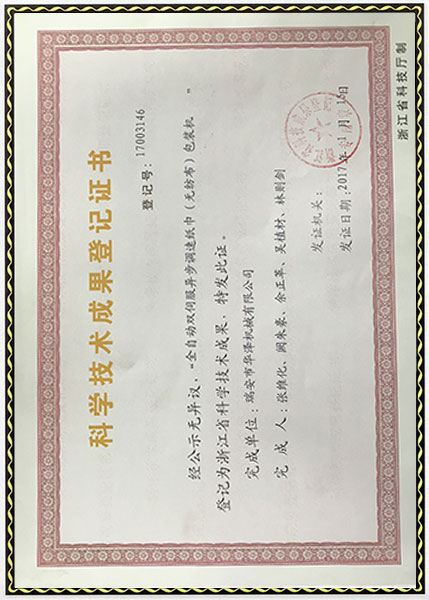 科学技术成果登记证书
登记号：17003146
经公示无异议，“全自动双伺服异步调速纸巾（无纺布）包装机”
登记为浙江省科学技术成果，特发此证。
完成单位：瑞安市华泽机械有限公司
完成人：张维化、阙朱豪、余正革、吴植材、林则剑
发证机关：
发证日期：2017年1月16日
浙江省科技厅制